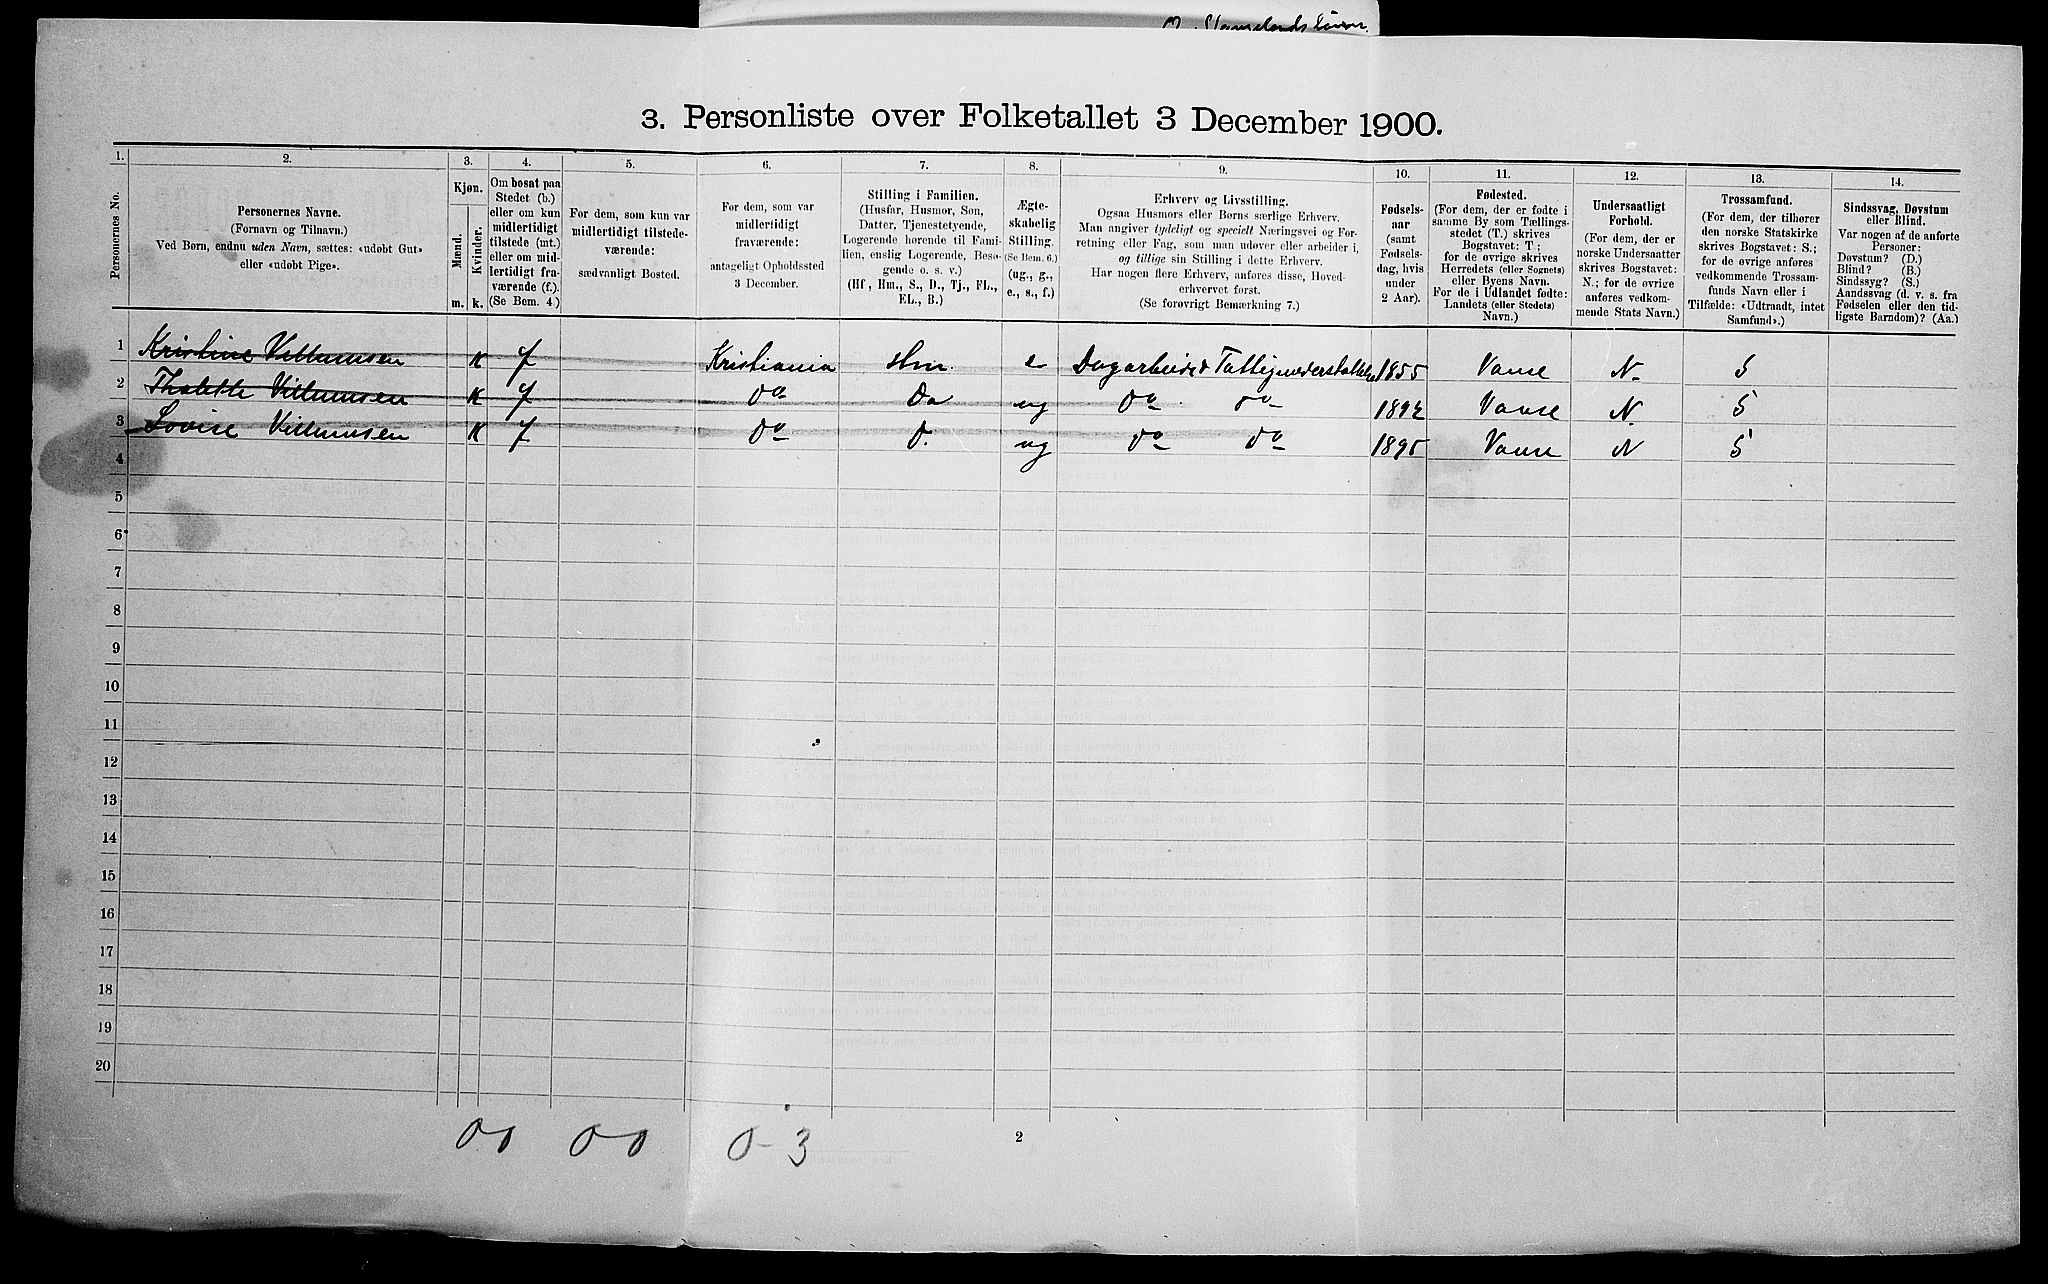 3. Personliste over Folketallet 3 December 1900.
1. 2. 3. 4. 5. 6. 7. 8. 9. 10. 11. 12. 13. 14.
Personernes No.
Personernes Navne.
(Fornavn og Tilnavn.)
Ved Børn, endnu uden Navn, sættes: «udøbt Gut»
eller «udøbt Pige».
Kjøn.
Mænd. Kvinder.
m. k.
Om bosat paa
Stedet (b.)
eller om kun
midlertidigt
tilstede (mt.)
eller om mid-
lertidigt fra-
værende (f.).
(Se Bem. 4.)
For dem, som kun var
midlertidigt tilstede-
værende:
sædvanligt Bosted.
For dem, som var
midlertidigt
fraværende:
antageligt Opholdssted
3 December.
Stilling i Familien.
(Husfar, Husmor, Søn,
Datter, Tjenestetyende,
Logerende hørende til Fami-
lien, enslig Logerende, Besø-
gende o. s. v.)
(Hf, Hm., S., D., Tj., FL.,
EL., B.)
Ægte-
skabelig
Stilling.
(Se Bem. 6.)
(ug., g.,
e., s., f.)
Erhverv og Livsstilling.
Ogsaa Husmors eller Børns særlige Erhverv.
Man angiver tydeligt og specielt Næringsvei og For-
retning eller Fag, som man udøver eller arbeider i,
og tillige sin Stilling i dette Erhverv.
Har nogen flere Erhverv, anføres disse, Hoved-
erhvervet først.
(Se forøvrigt Bemærkning 7.)
Fødsels-
aar
(samt
Fødsels-
dag, hvis
under
2 Aar).
Fødested.
(For dem, der er fødte i
samme By som Tællings-
stedet (T.) skrives
Bogstavet: T.;
for de øvrige skrives
Herredets (eller Sognets)
eller Byens Navn.
For de i Udlandet fødte:
Landets (eller Stedets)
Navn.)
Undersaatligt
Forhold.
(For dem, der er
norske Undersaatter
skrives Bogstavet:
N.; for de øvrige
anføres vedkom-
mende Stats Navn.)
Trossamfund.
(For dem, der tilhører
den norske Statskirke
skrives Bogstavet: S.;
for de øvrige anføres
vedkommende Trossam-
funds Navn eller i
Tilfælde: «Udtraadt, intet
Samfund».)
Sindssvag, Døvstum
eller Blind.
Var nogen af de anførte
Personer:
Døvstum? (D.)
Blind? (B.)
Sindssyg? (S.)
Aandssvag (d. v. s. fra
Fødselen eller den tid-
ligste Barndom)? (Aa.)
1 Kristine Villumsen K f Kristiania Hm. e Dagarbeide 1855 Vanse N. S
2 Thalette Villumsen K f do Da ug do do 1892 Vanse N. S
3 Lovise Villumsen K f do D. ug do do 1895 Vanse N S
4
5
6
7
8
9
10
11
12
13
14
15
16
17
18
19
20
00 00 0-3
2